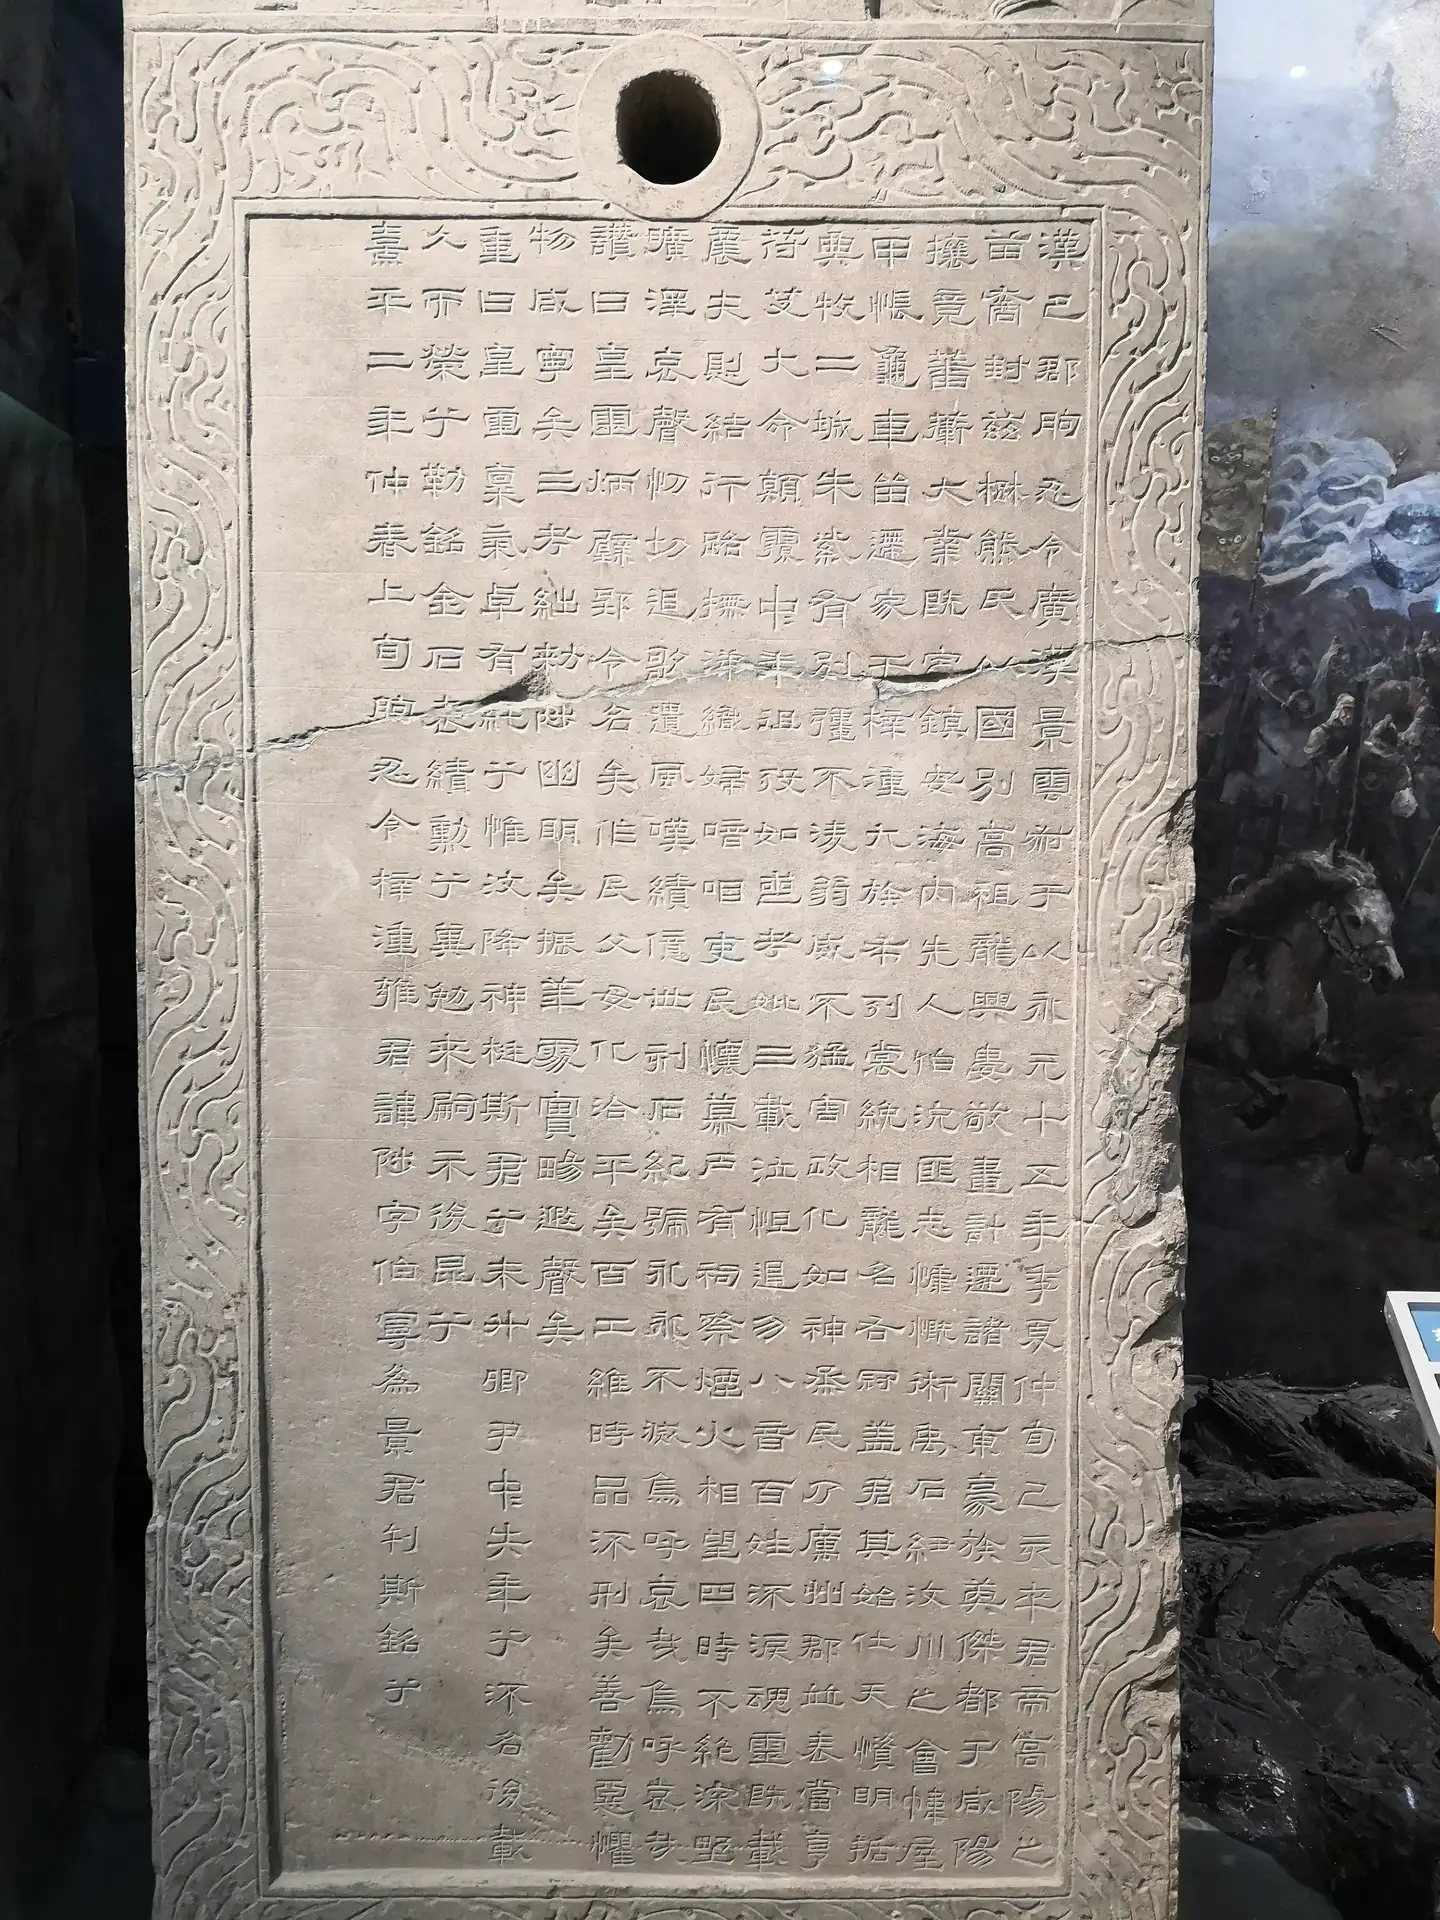 漢巴郡朐忍令廣漢景雲叔于以永元十五年季夏仲旬己亥卒君帝高陽之
苗裔封茲楙熊氏以國別高祖龍興婁敬畫計遷諸關東豪族英傑都于咸陽
攘竟蕃衛大業既定鎮安海內先人伯沇匪志慷慨術禹石紐汶川之會幃屋
甲帳龜車留遷家于梓潼九族布列裳絻相龍名右冠蓋君其始仕天資明括
典牧二城朱紫有別彊不淩弱威不猛害政化如神蒸民乃厲州郡並表當亨
符艾大命顛覆中年徂歿如喪考妣三載泣怛退勿八音百姓流淚魂靈既載
農夫惻結行路撫涕織婦喑咽吏民懷慕戶有祠祭煙火相望四時不絕深野
曠澤哀聲忉切追歌遺風嘆績億世刊石紀號永永不滅烏呼哀哉烏呼哀哉
讚曰皇靈炳璧郢令名矣作民父母化洽平矣百工維時品流刑矣善勸惡懼
物咸寧矣三考絀敕陟幽明矣振華處實暢遐聲矣
重曰皇靈稟氣卓有純兮惟汶降神梃斯君兮未升卿尹中失年兮流名後載
久而榮兮勒銘金石表績勳兮冀勉來嗣示後昆兮
熹平二年仲春上旬朐忍令梓潼雍君諱陟字伯寧為景君刊斯銘兮